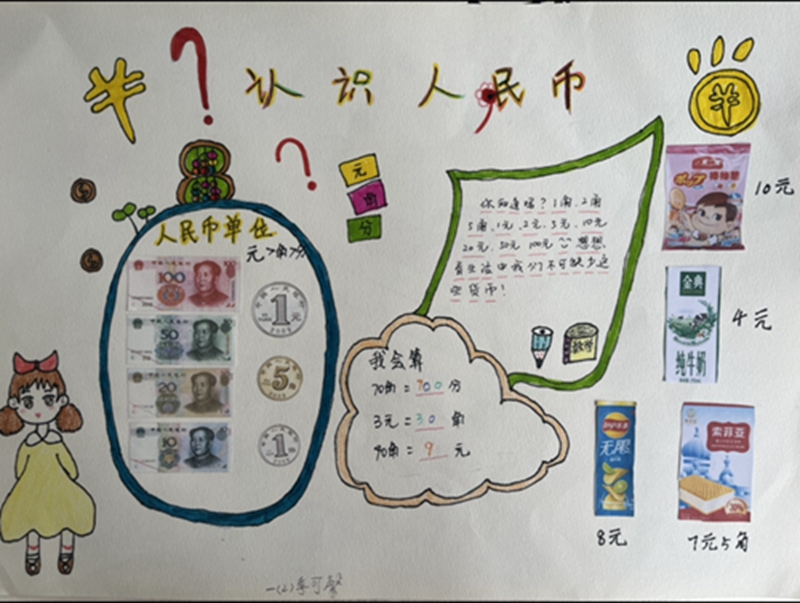 认识人民币
元
角
分
人民币单位
元>角>分
100
50
20
10
1元
5角
1角
你知道吗?1角、2角
5角、1元、2元、5元、10元
20元、50元、100元 想想
看生活中我们不可缺少这
些货币!
数学
我会算
70角=700分
3元=30角
90角=9元
10元
金典
纯牛奶
4元
无限
8元
索菲亚
7元5角